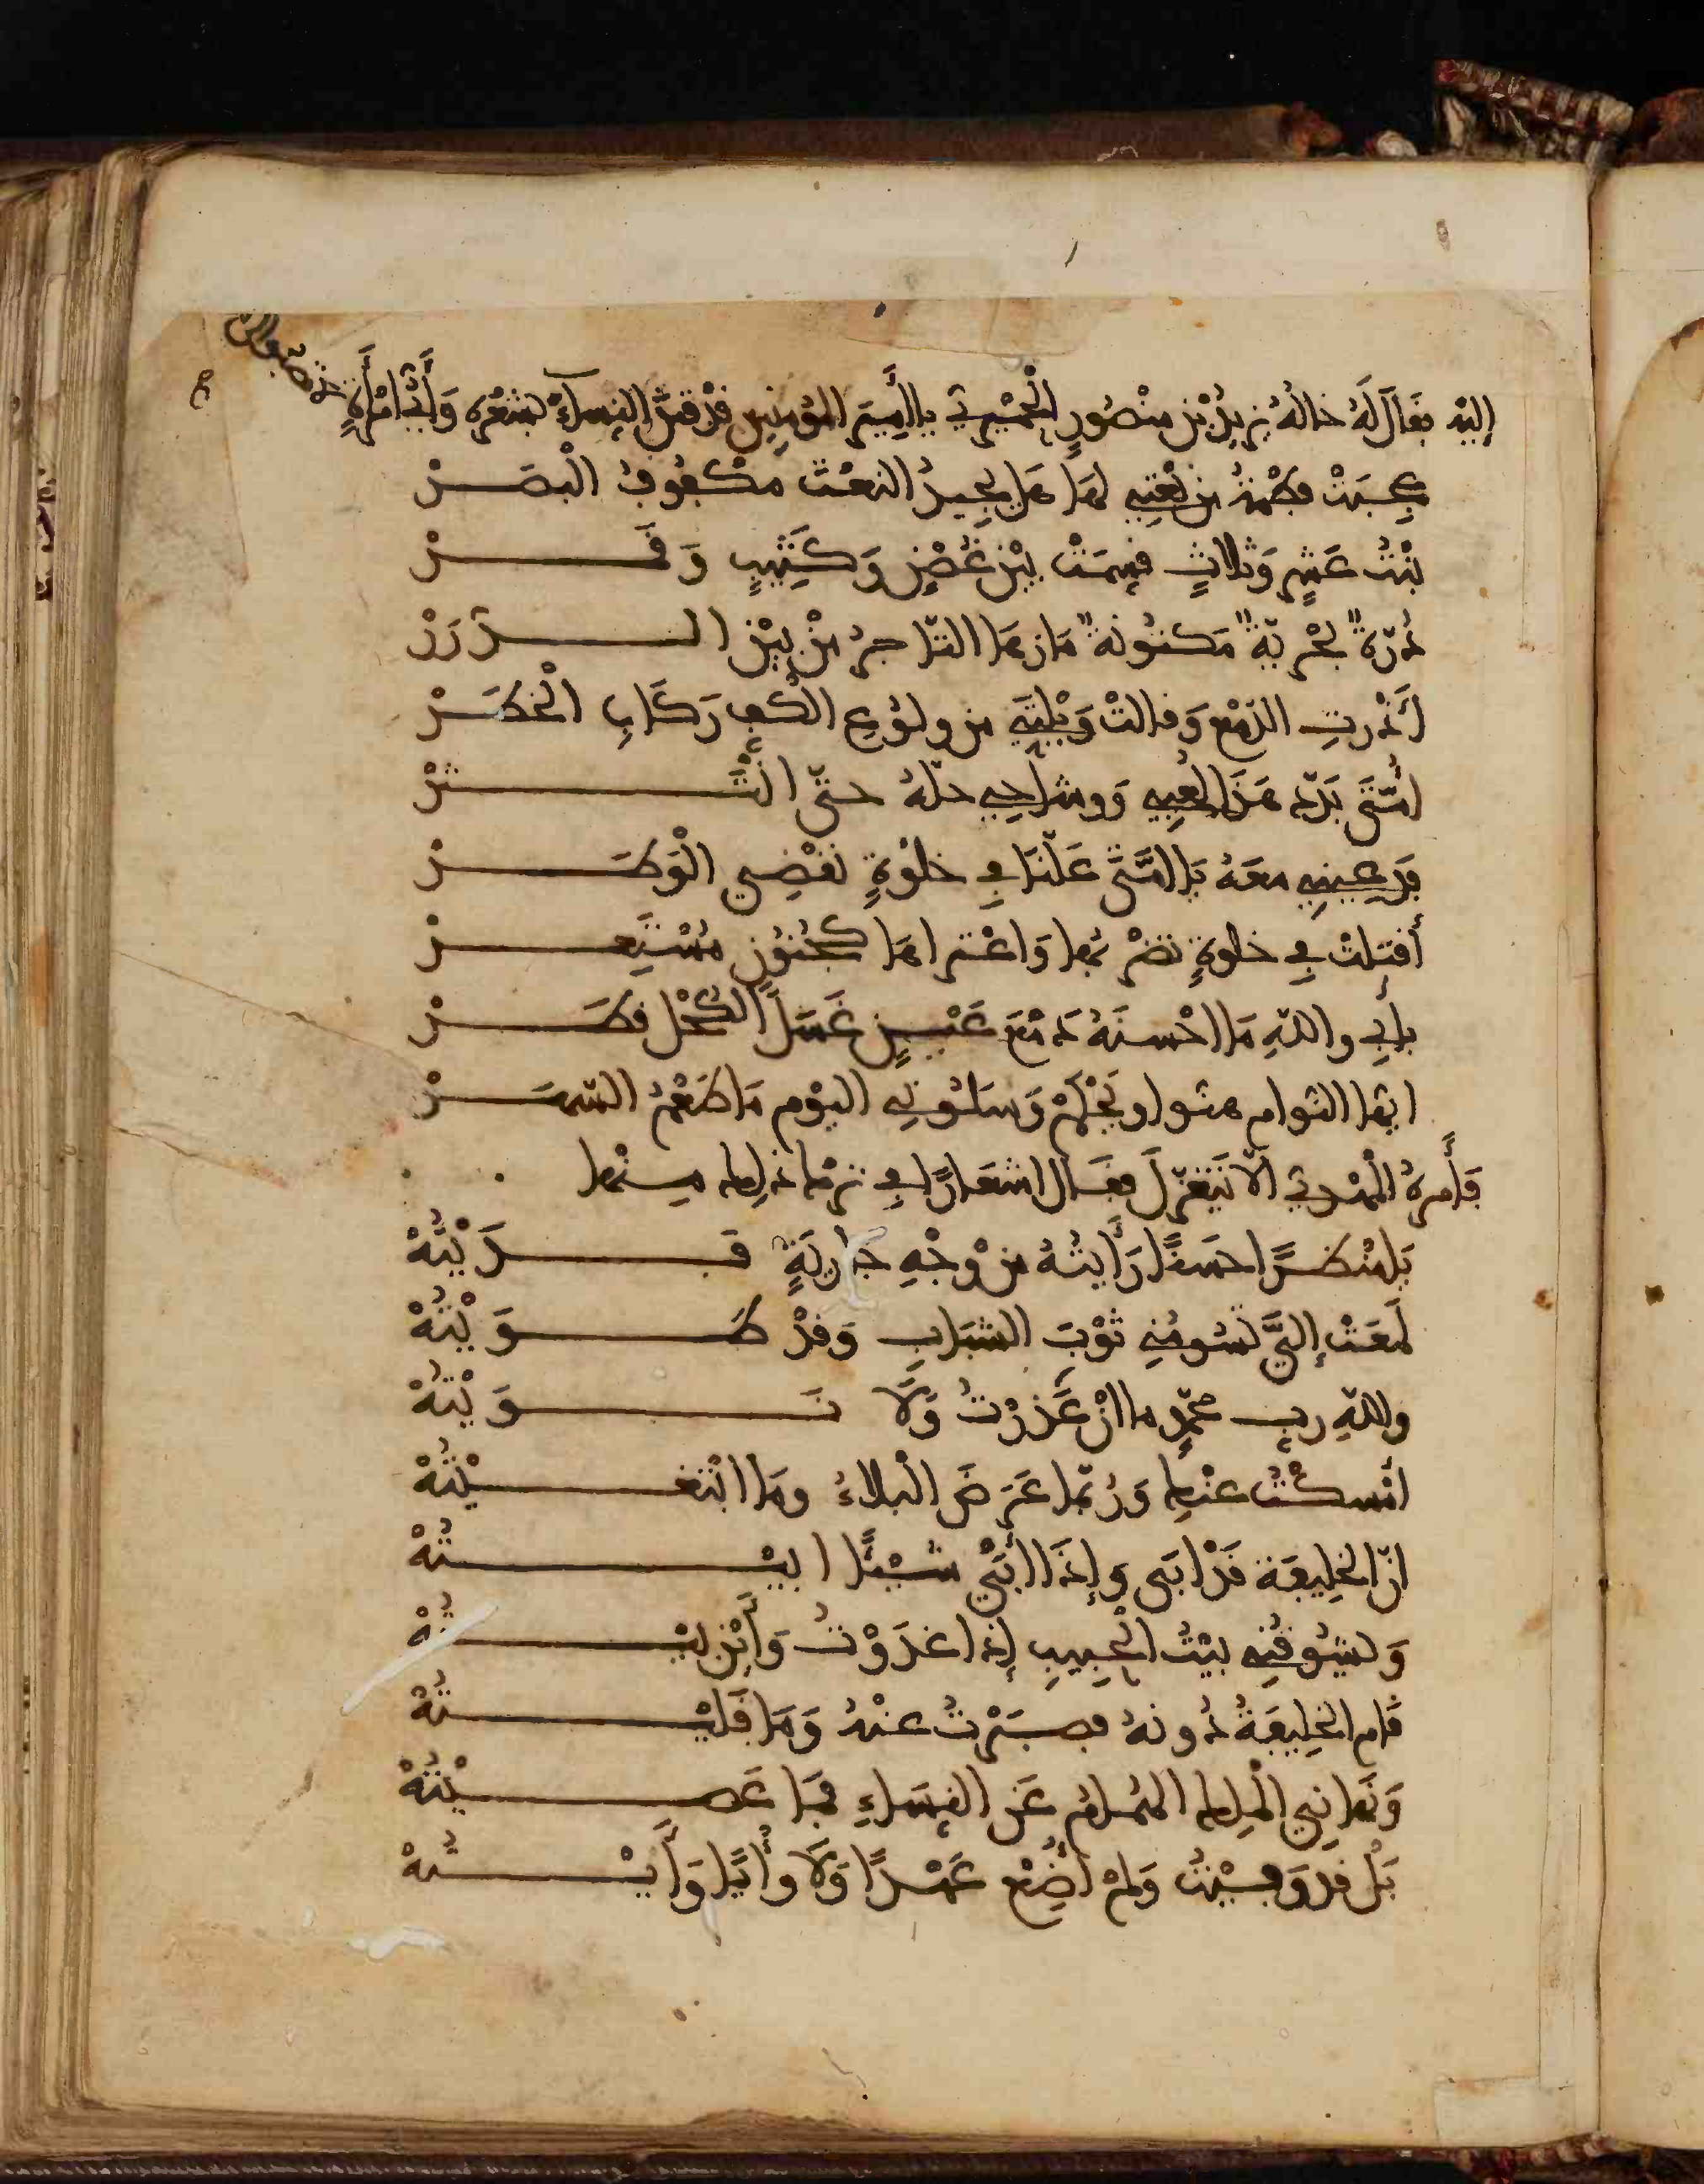 إليه فقال له خاله يزيد بن منصور الحميري يا أمير المؤمنين قد فتن النساء بشعره وأي امرأة
عجبت فطمة من نعتي لها هل يجيد النعت مكفوف البصر
بنت عشر وثلاث قسمت بين غصن وكثيب وقمر
درة بحرية مكنونة مازها التاجر من بين الدرر
أذرت الدمع وقالت ويلتي من ولوع الكف ركاب الخطر
أمتي بدد هذا لعبي ووشاحي حله حتى انتثر
فدعيني معه يا أمتى علنا في خلوة نقضي الوطر
أقبلت في خلوة تضربها واعتراها كجنون مستعر
بأبي والله ما احسنه دمع عين غسل الكحل قطر
ايها النوام هبوا ويحكم وسلوني اليوم ما طعم السهر
فأمره المهدي ألا يتغزل فقال اشعارا في ذلك منها
يا منظرا حسنا رأيته من وجه جارية فديته
لمعت إلي تسومني ثوب الشباب وقد طويته
والله رب محمد ما ان غدرت ولا نويته
امسكت عنك وربما عرض البلاء وما ابتغيته
ان الخليفة قد ابى وإذا أبى شيئا ابيته
ويشوقني بيت الحبيب إذا غدوت وأين بيته
قام الخليفة دونه فصبرت عنه وما قليته
ونهاني الملك الهمام عن النساء فما عصيته
بل قد وفيت ولم أضع عهدا ولا وأيا وأيته